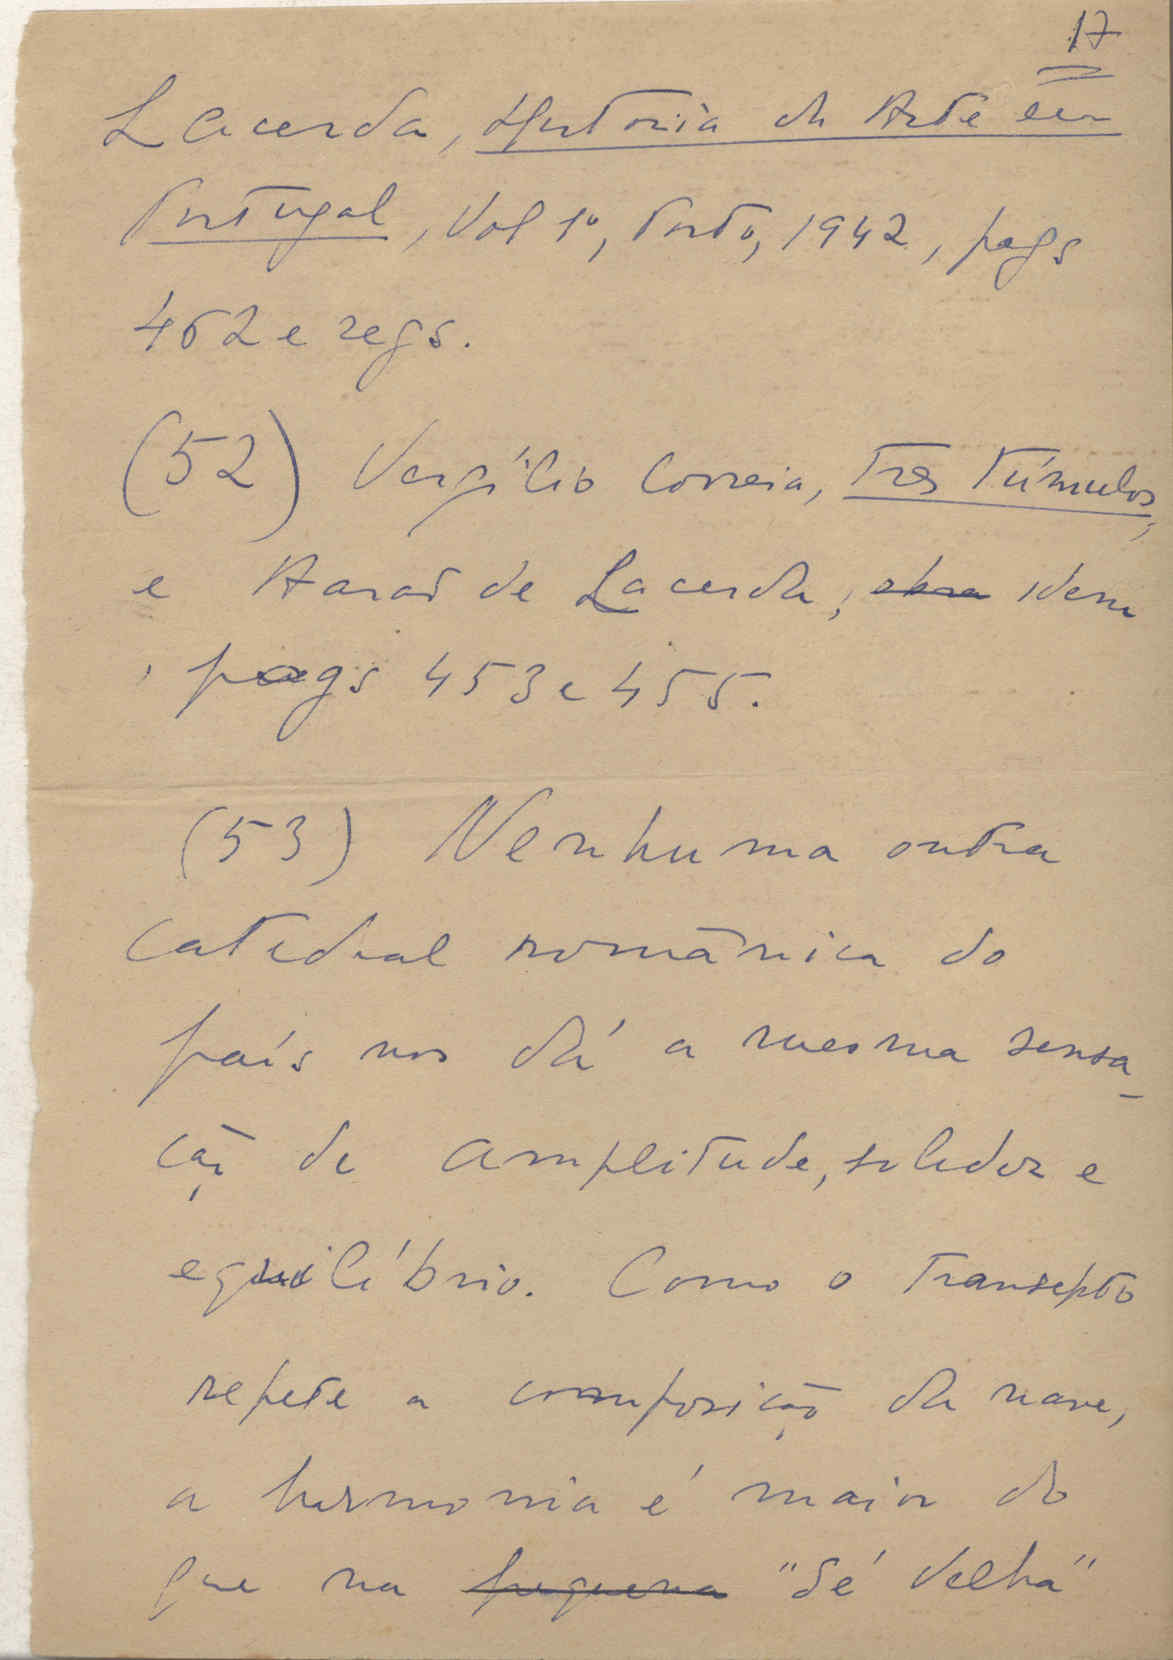 17
Lacerda, Historia da Arte em
Portugal, Vol 1º, Porto, 1942, pags
462 e segs.
(52) Vergílio Correia, Tres Túmulos,
e Aarão de Lacerda, obra idem
, pags 453 e 455.
(53) Nenhuma outra
catedral românica do
país nos dá a mesma sensa-
ção de amplitude, solidez e
equilíbrio. Como o transepto
repete a composição da nave,
a harmonia é maior do
que na pequena "Sé Velha"